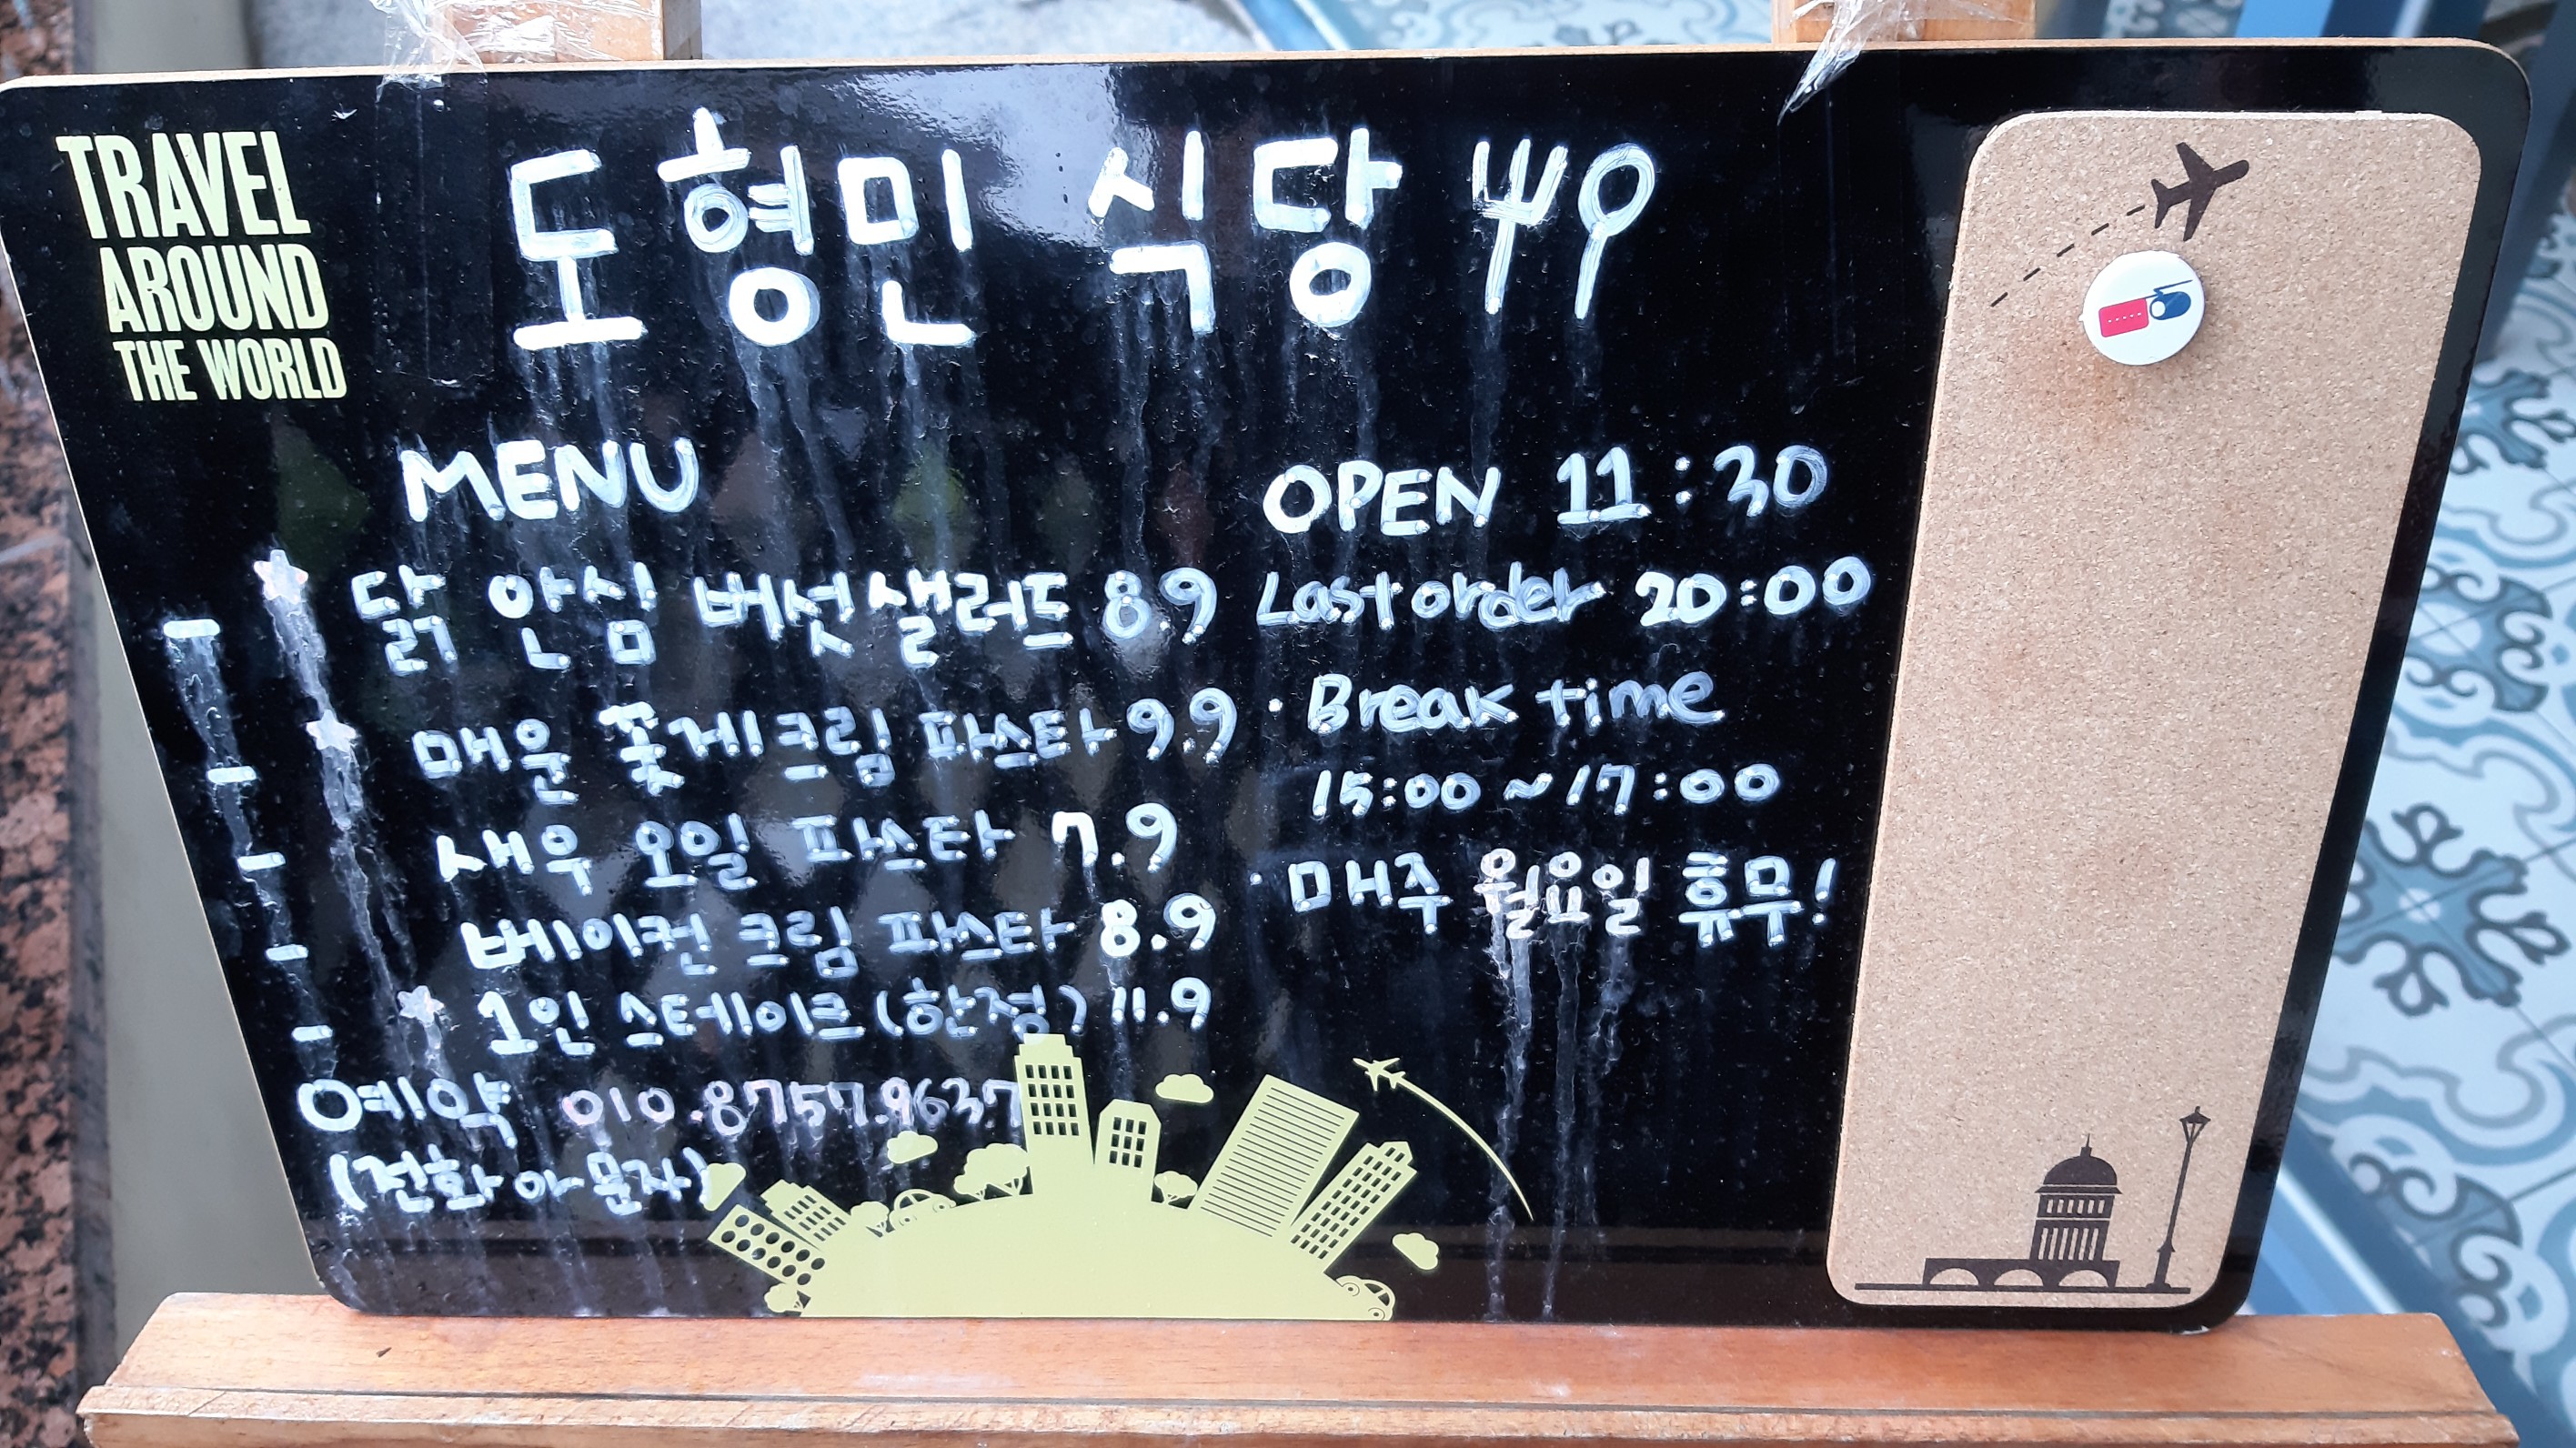 TRAVEL
AROUND
THE WORLD
도형민 식당
MENU
- 닭 안심 버섯 샐러드 8.9
- 매운 꽃게 크림 파스타 9.9
- 새우 오일 파스타 7.9
- 베이컨 크림 파스타 8.9
- 1인 스테이크 (한정) 11.9
예약 010.8757.9637
(전화 or 문자)
OPEN 11:30
Last order 20:00
· Break time
15:00 ~ 17:00
· 매주 월요일 휴무!